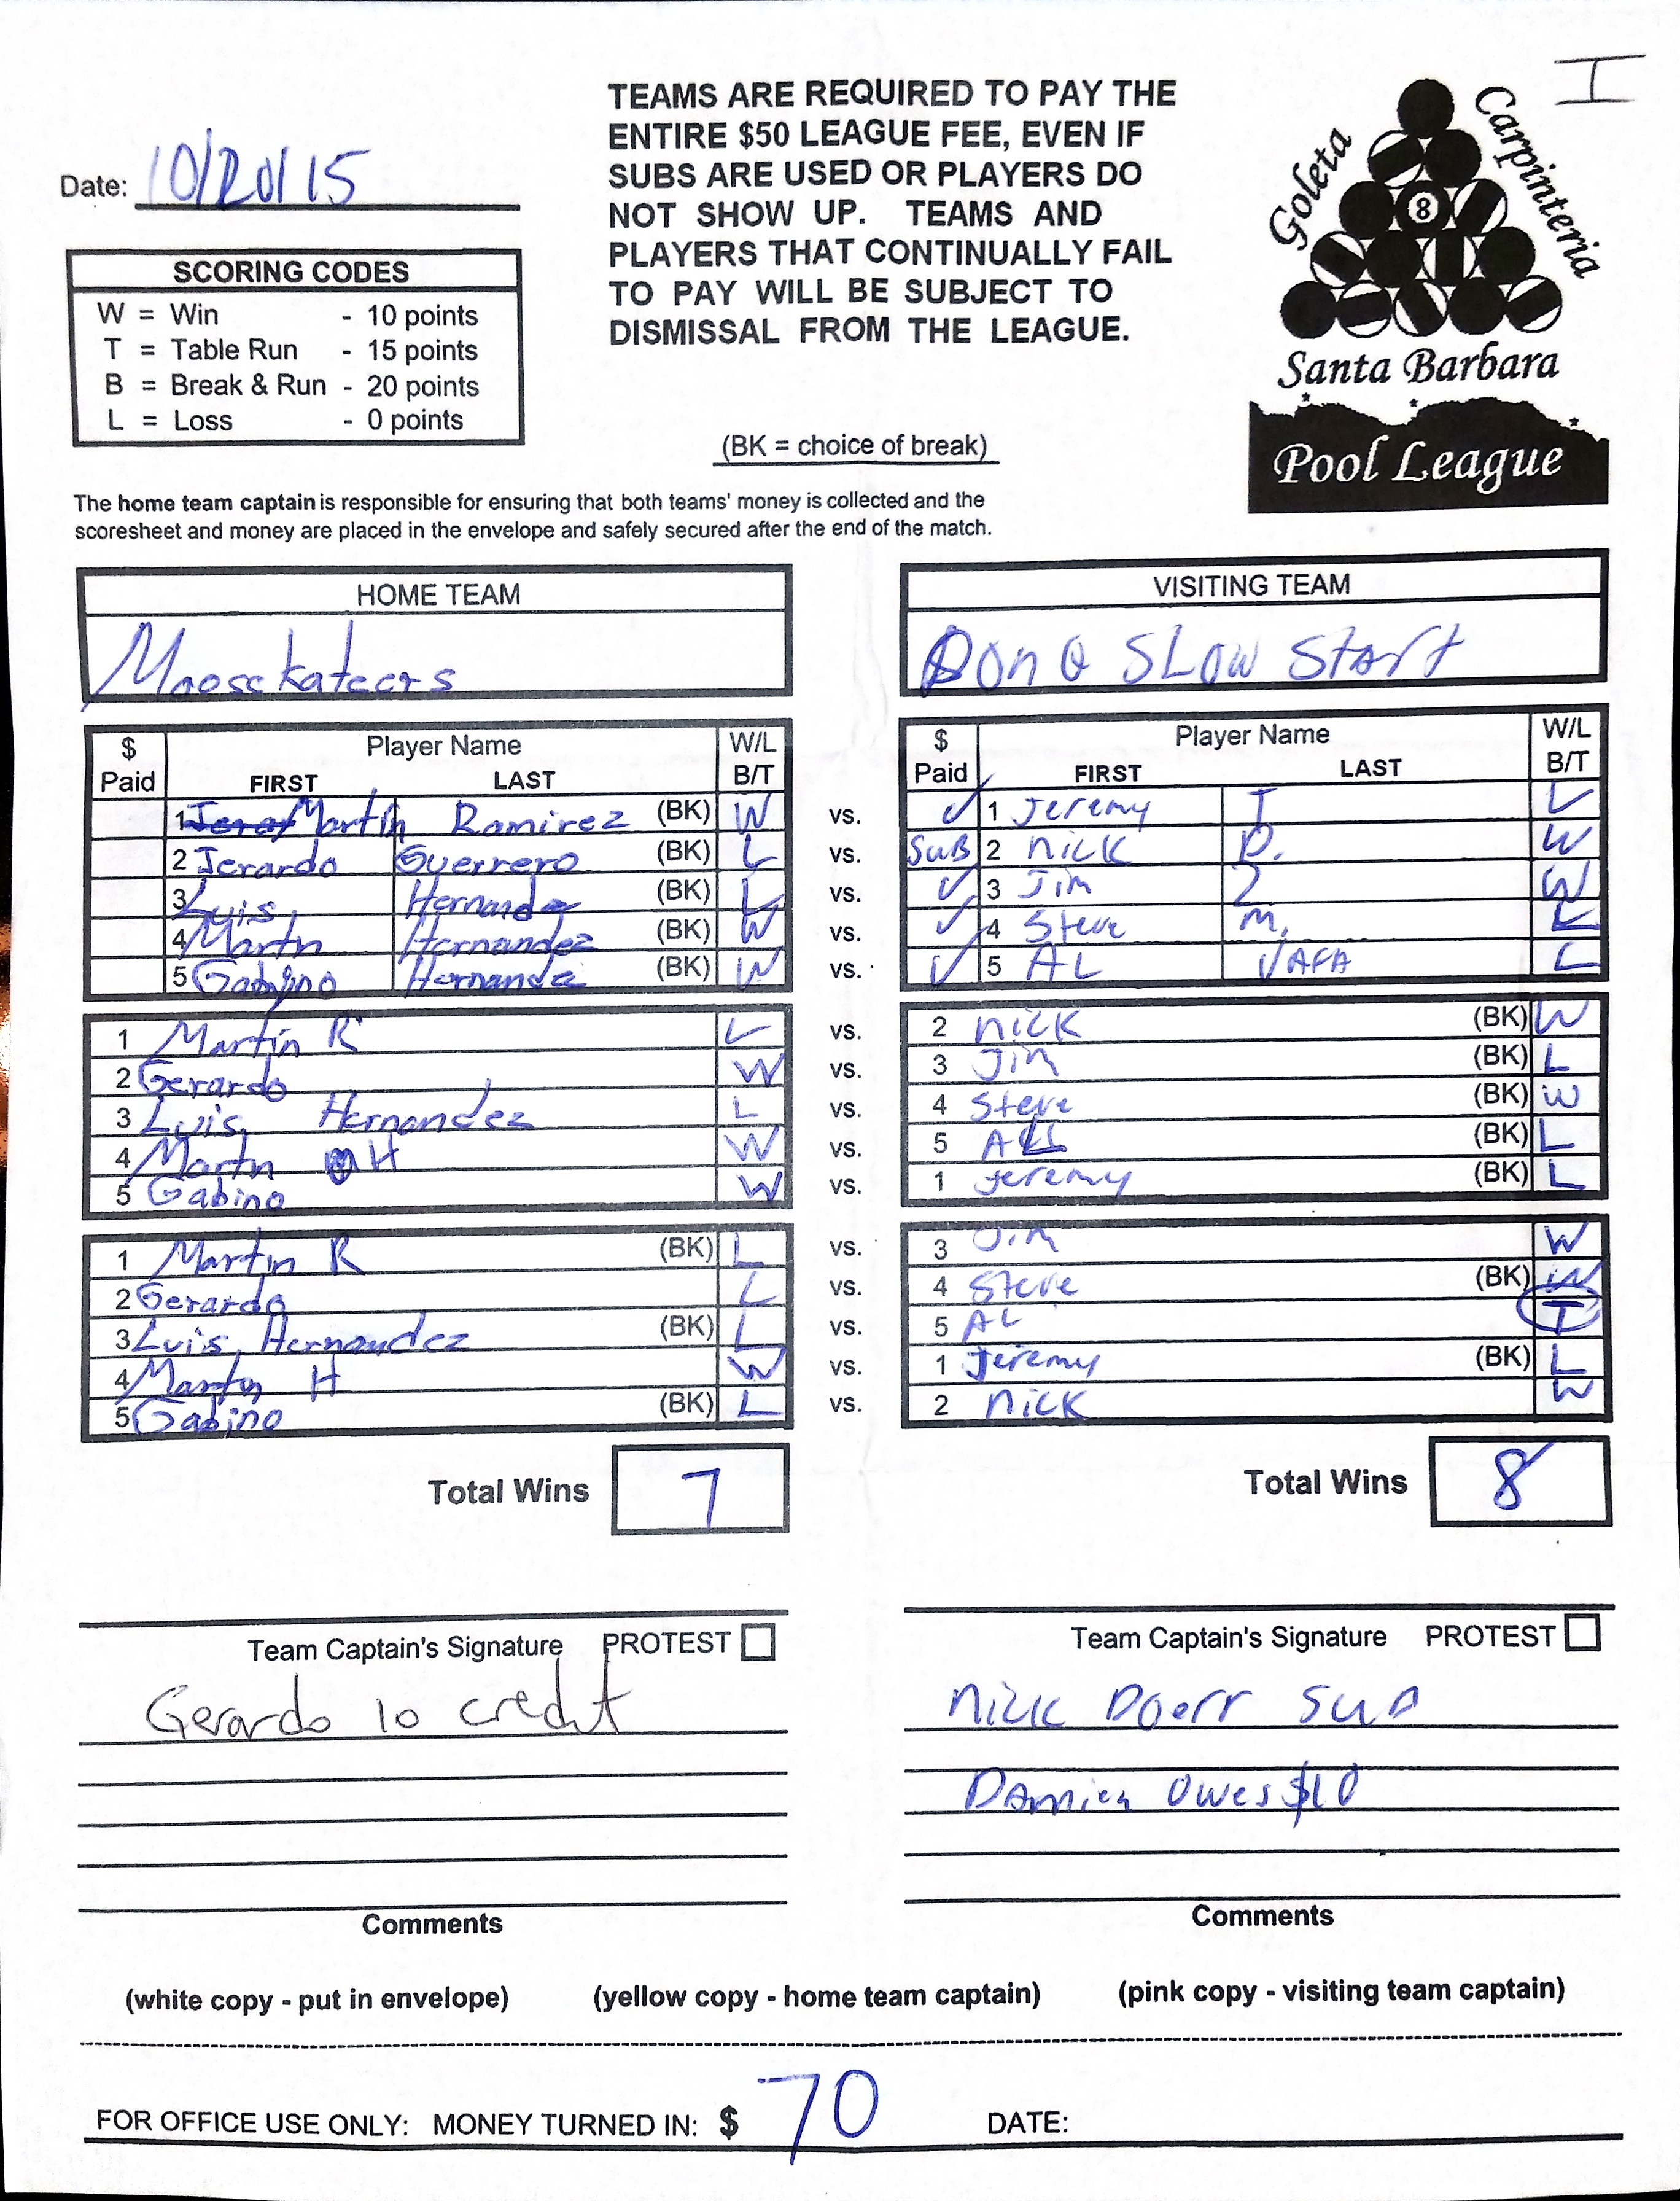 I
Date: 10/20/15
TEAMS ARE REQUIRED TO PAY THE
ENTIRE $50 LEAGUE FEE, EVEN IF
SUBS ARE USED OR PLAYERS DO
NOT SHOW UP. TEAMS AND
PLAYERS THAT CONTINUALLY FAIL
TO PAY WILL BE SUBJECT TO
DISMISSAL FROM THE LEAGUE.
Goleta
Carpinteria
8
Santa Barbara
Pool League
SCORING CODES
W = Win - 10 points
T = Table Run - 15 points
B = Break & Run - 20 points
L = Loss - 0 points
(BK = choice of break)
The home team captain is responsible for ensuring that both teams' money is collected and the
scoresheet and money are placed in the envelope and safely secured after the end of the match.
HOME TEAM
Moosekateers
VISITING TEAM
on a SLOW Start
$ Paid Player Name FIRST LAST W/L B/T
$ Paid Player Name FIRST LAST W/L B/T
1 Martin Ramirez (BK) W vs. ✓ 1 Jeremy T L
2 Jerardo Guerrero (BK) L vs. SUB 2 NICK D. W
3 Luis Hernandez (BK) L vs. ✓ 3 Jim Z W
4 Martin Hernandez (BK) W vs. ✓ 4 Steve M. L
5 Gabino Hernandez (BK) W vs. ✓ 5 AL L
1 Martin R L vs. 2 NICK (BK) W
2 Gerardo W vs. 3 Jim (BK) L
3 Luis Hernandez L vs. 4 Steve (BK) W
4 Martn H W vs. 5 AL (BK) L
5 Gabino W vs. 1 Jeremy (BK) L
1 Martin R (BK) L vs. 3 Jim W
2 Gerardo L vs. 4 Steve (BK) W
3 Luis Hernandez (BK) L vs. 5 AL T
4 Martin H W vs. 1 Jeremy (BK) L
5 Gabino (BK) L vs. 2 NICK W
Total Wins 7
Total Wins 8
Team Captain's Signature PROTEST
Team Captain's Signature PROTEST
Gerardo 10 credit
Nick Doerr SUB
Damien Owes $10
Comments
Comments
(white copy - put in envelope) (yellow copy - home team captain) (pink copy - visiting team captain)
FOR OFFICE USE ONLY: MONEY TURNED IN: $ 70 DATE: